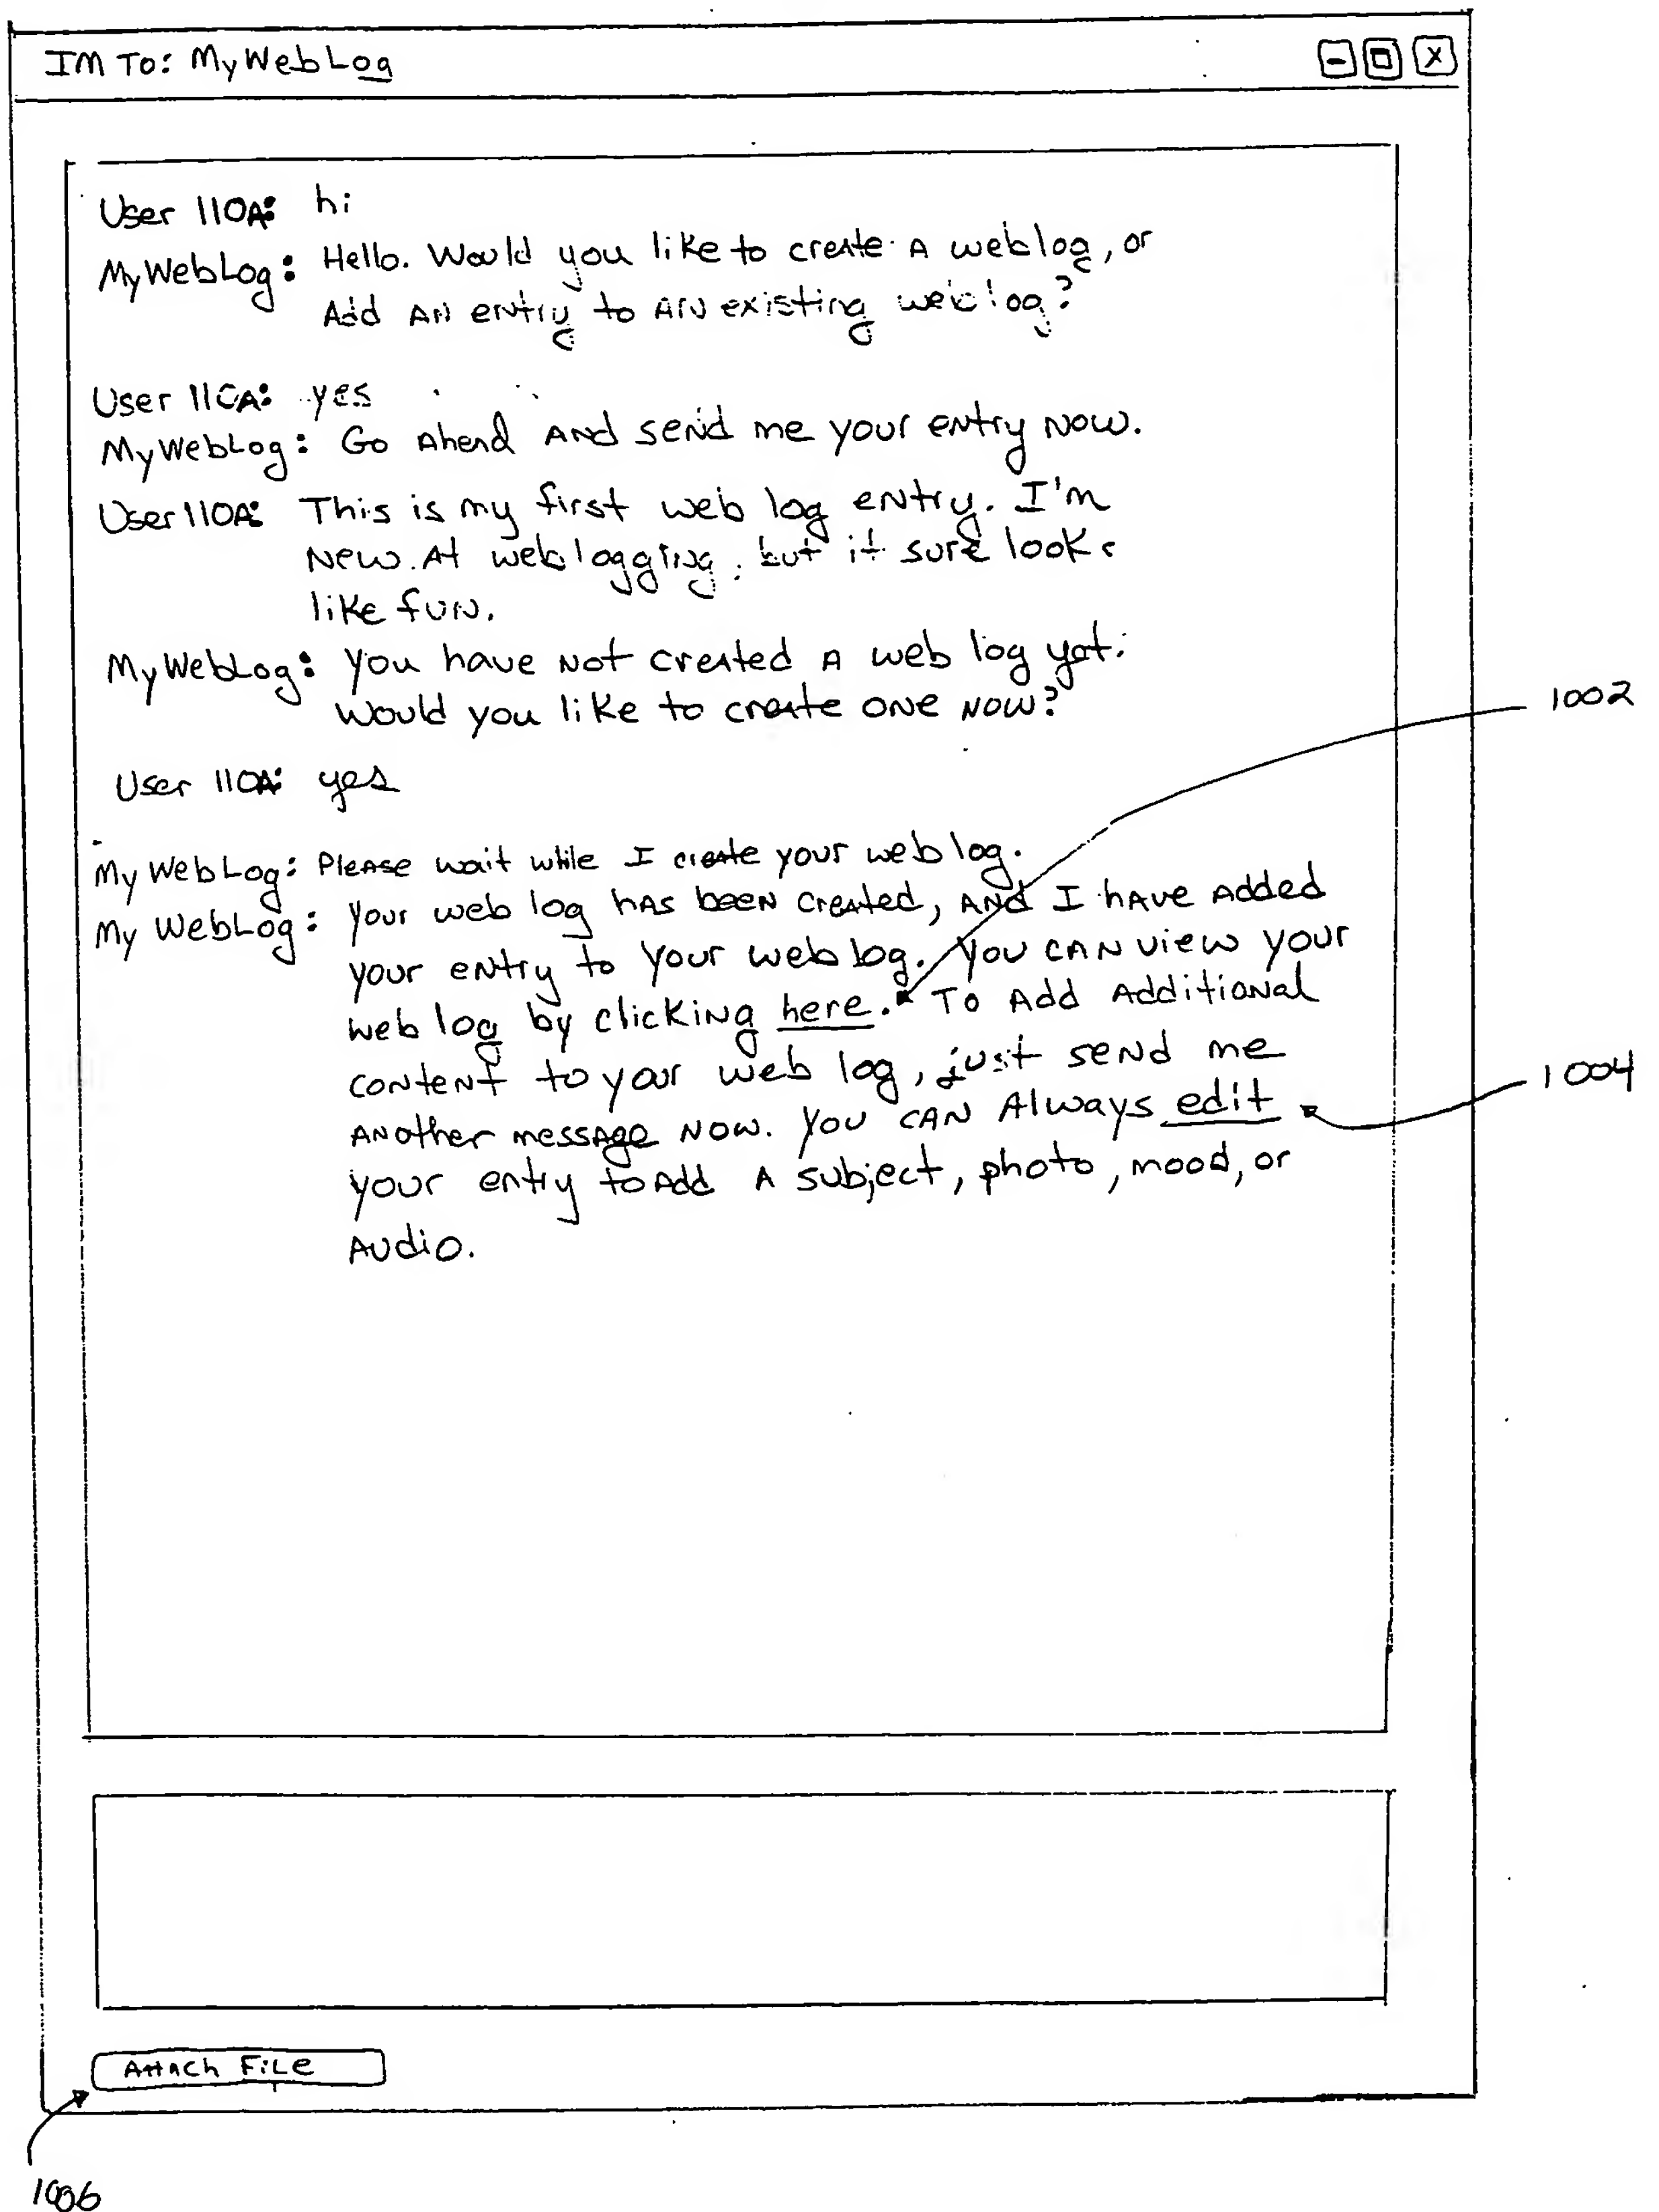 IM To: MyWebLog
User 110A: hi
MyWebLog: Hello. Would you like to create A weblog, or
Add AN entry to AN existing weblog?
User 110A: yes
MyWebLog: Go Ahead AND send me your entry NOW.
User 110A: This is my first web log entry. I'm
New At weblogging, but it sure looks
like fun.
MyWebLog: You have Not created A web log yet.
Would you like to create ONE NOW?
1002
User 110A: yes
My WebLog: Please wait while I create your web log.
My WebLog: Your web log hAs been created, AND I hAve Added
your entry to your web log. You CAN view your
web log by clicking here. To Add Additional
content to your web log, just send me
1004
ANother message NOW. You CAN Always edit
your entry to Add A subject, photo, mood, or
Audio.
Attach File
1006